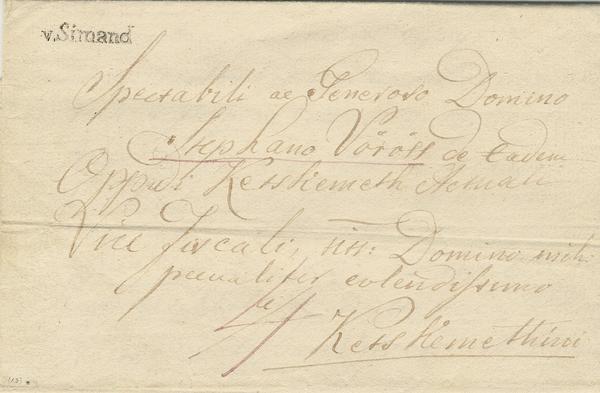 v.Simand
Spectabili ac Generoso Domino
Stephano Vörös de Eadem
Oppidi Ketskemeth Actuali
Vice Fiscali, Domino mih
peculariter colendissimo
4
Ketskemethini